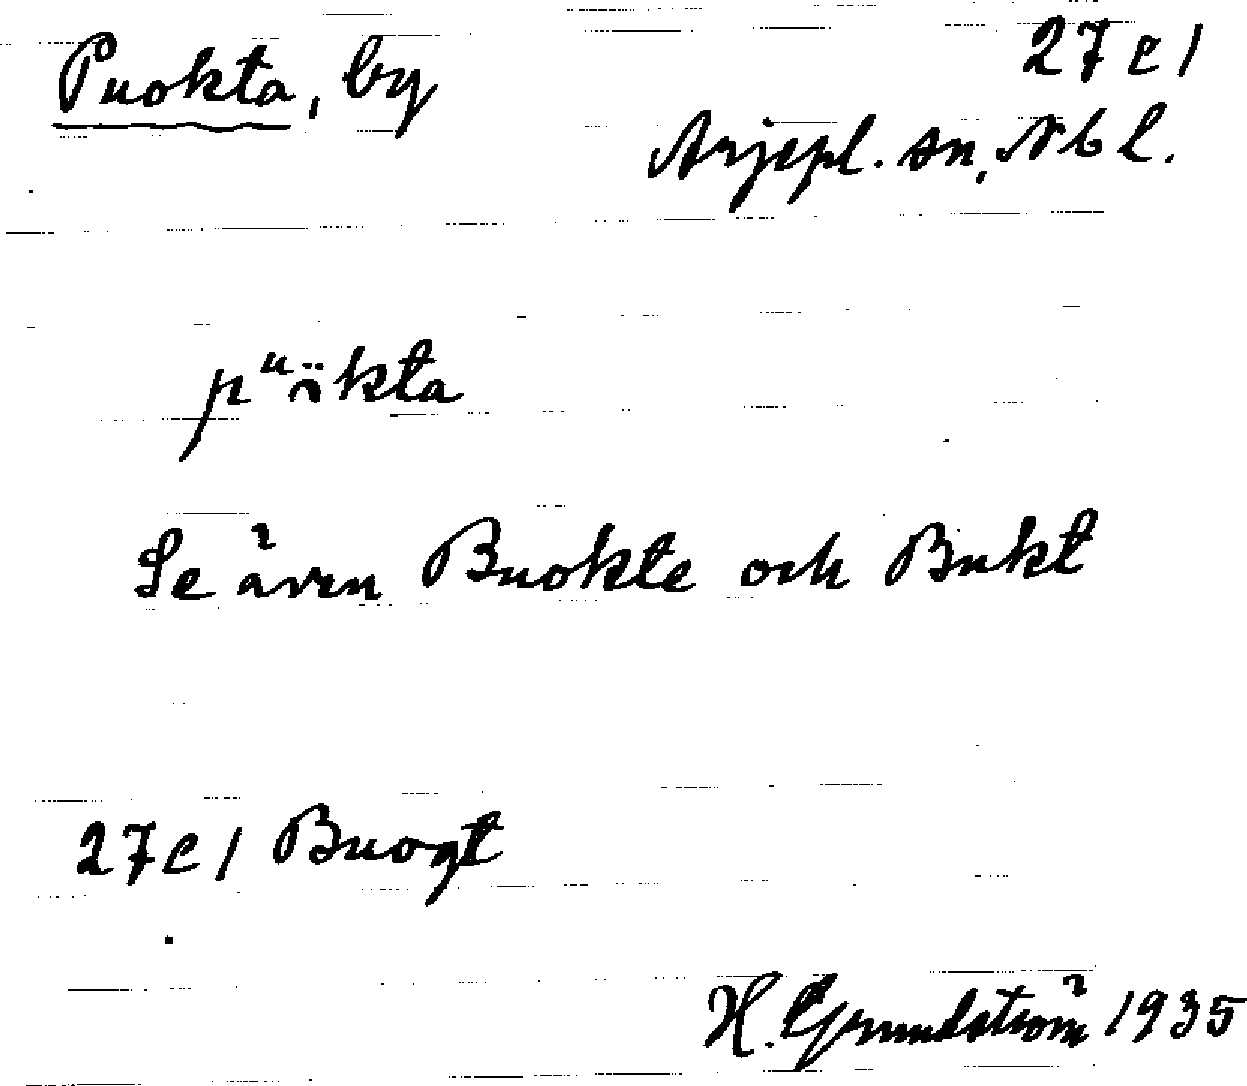 Puokta, by 27 c 1
Arjepl. sn, Nbl.
pᵘȧ̈kta
Se även Buokte och Bukt
27 c 1 Buogt
H. Grundström 1935